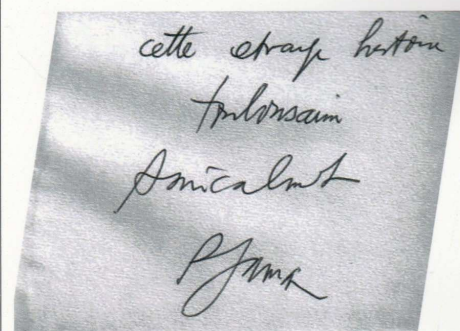 cette étrange histoire
toulousaine
Amicalement